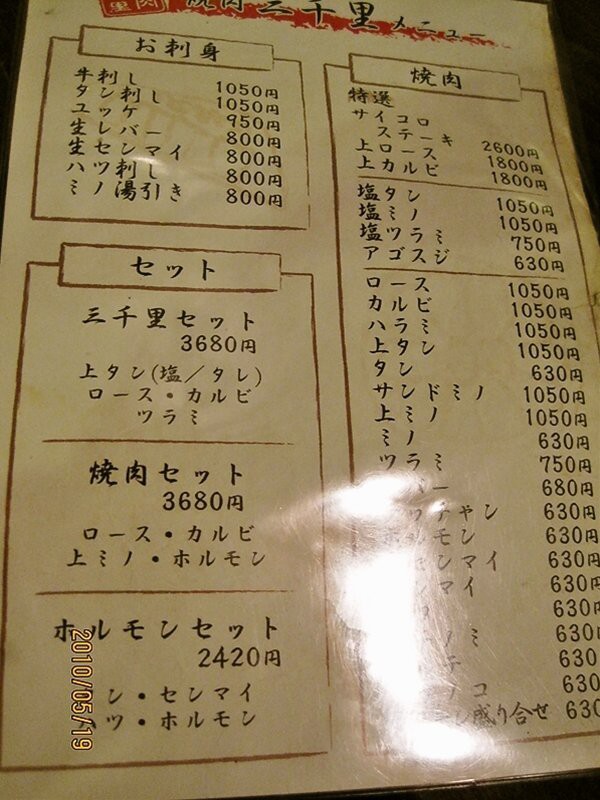 焼肉 三千里 メニュー
お刺身
牛刺し 1050円
タン刺し 1050円
ユッケ 950円
生レバー 800円
生センマイ 800円
ハツ刺し 800円
ミノ湯引き 800円
セット
三千里セット
3680円
上タン(塩/タレ)
ロース・カルビ
ツラミ
焼肉セット
3680円
ロース・カルビ
上ミノ・ホルモン
ホルモンセット
2420円
ン・センマイ
ハツ・ホルモン
焼肉
特選
サイコロ
ステーキ 2600円
上ロース 1800円
上カルビ 1800円
塩タン 1050円
塩ミノ 1050円
塩ツラミ 750円
アゴスジ 630円
ロース 1050円
カルビ 1050円
ハラミ 1050円
上タン 1050円
タン 630円
サンドミノ 1050円
上ミノ 1050円
ミノ 630円
ツラミ 750円
バー 680円
ッチャン 630円
ルモン 630円
センマイ 630円
マイ 630円
630円
ノミ 630円
テ 630円
コ 630
盛り合せ 630
2010/05/19